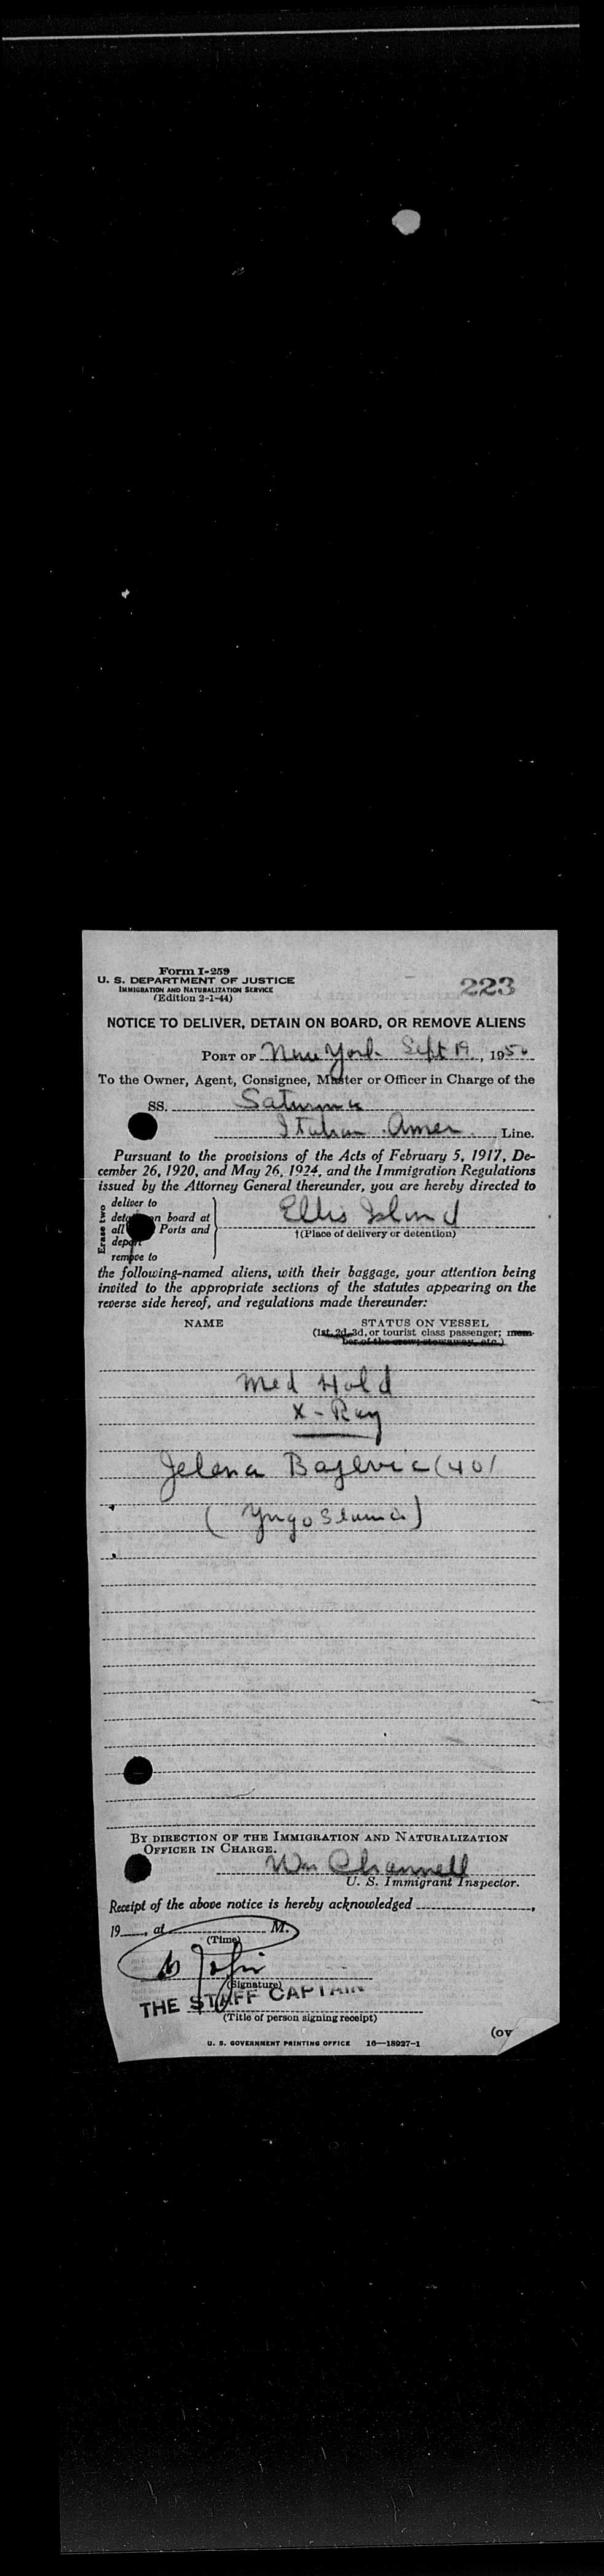 Form I-259
U. S. DEPARTMENT OF JUSTICE
IMMIGRATION AND NATURALIZATION SERVICE
(Edition 2-1-44)
223
NOTICE TO DELIVER, DETAIN ON BOARD, OR REMOVE ALIENS
PORT OF New York Sept 19, 1950
To the Owner, Agent, Consignee, Master or Officer in Charge of the
SS. Saturnia
Italian Amer Line.
Pursuant to the provisions of the Acts of February 5, 1917, De-
cember 26, 1920, and May 26, 1924, and the Immigration Regulations
issued by the Attorney General thereunder, you are hereby directed to
Erase two
deliver to
on board at
all Ports and
depart
remove to
Ellis Island
†(Place of delivery or detention)
the following-named aliens, with their baggage, your attention being
invited to the appropriate sections of the statutes appearing on the
reverse side hereof, and regulations made thereunder:
NAME STATUS ON VESSEL
(1st, 2d, 3d, or tourist class passenger; mem-
ber of the crew, stowaway, etc.)
Med Hold
X-Ray
Jelena Bajevic (40)
(Yugoslavia)
BY DIRECTION OF THE IMMIGRATION AND NATURALIZATION
OFFICER IN CHARGE.
Wm Channell
U. S. Immigrant Inspector.
Receipt of the above notice is hereby acknowledged
19, at M.
(Time)
(Signature)
THE STAFF CAPTAIN
(Title of person signing receipt)
U. S. GOVERNMENT PRINTING OFFICE 16—18927-1
(ov